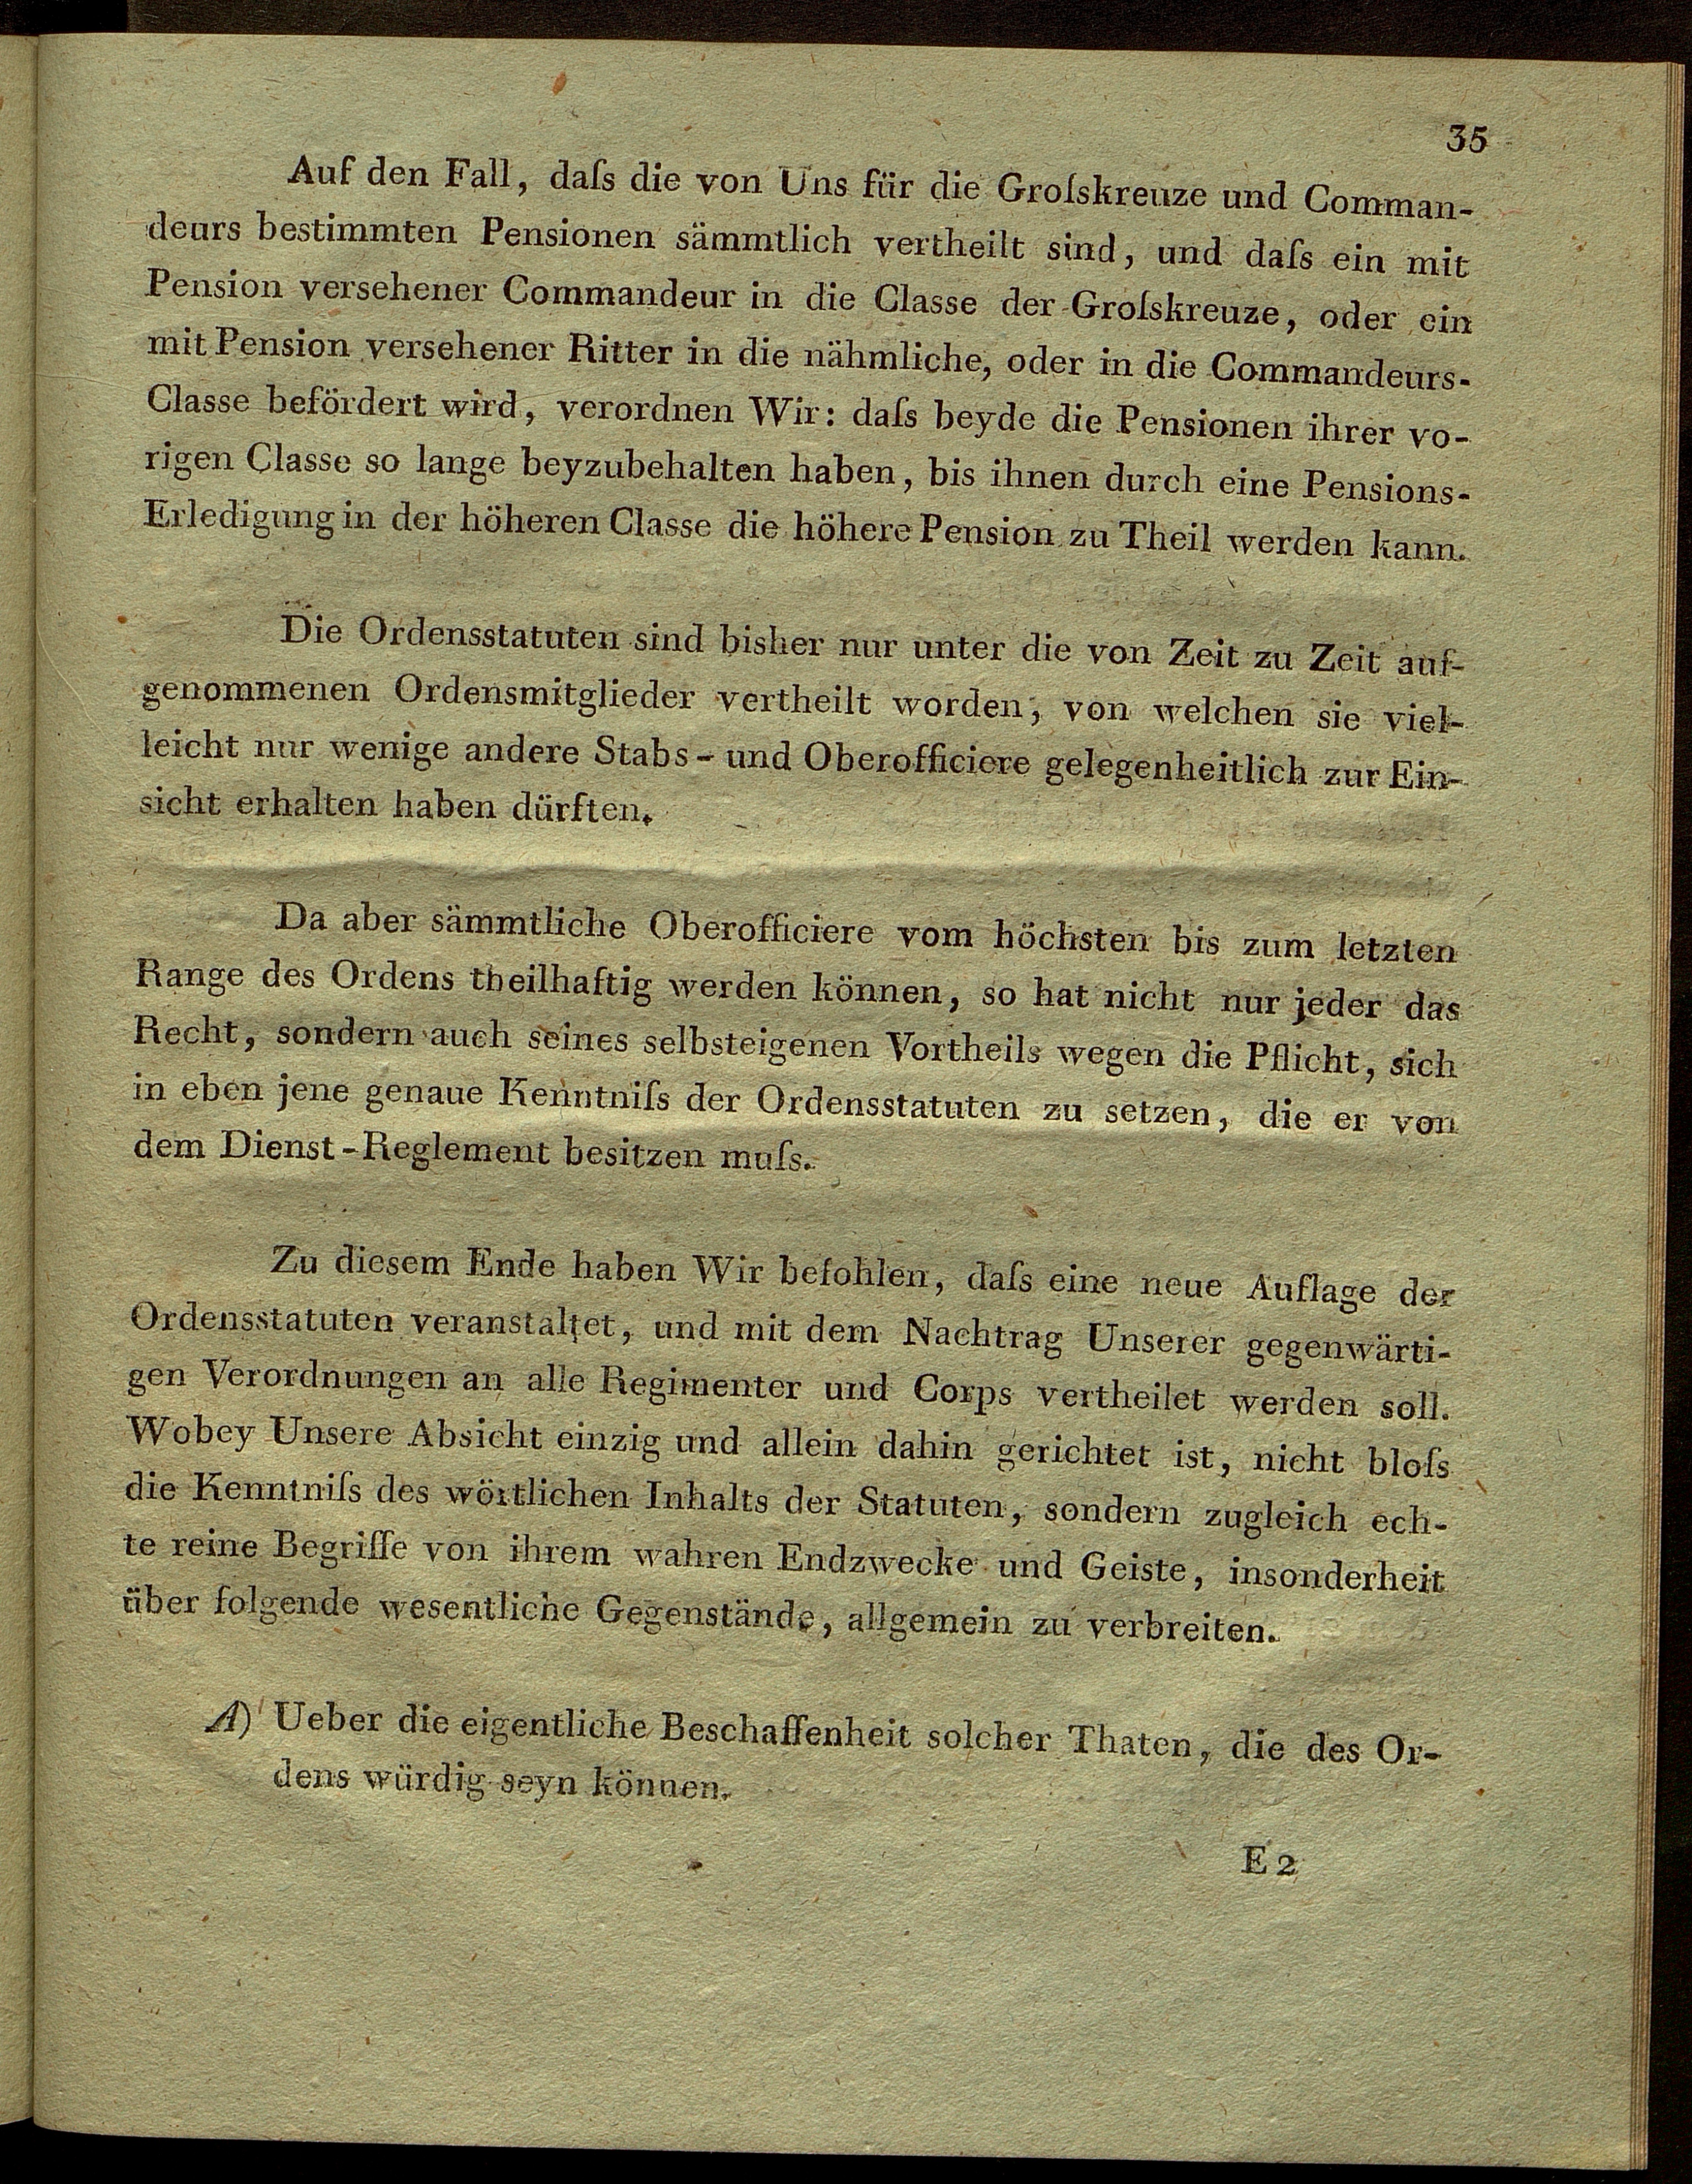 35
Auf den Fall, daſs die von Uns für die Groſskreuze und Comman-
deurs bestimmten Pensionen sämmtlich vertheilt sind, und daſs ein mit
Pension versehener Commandeur in die Classe der Groſskreuze, oder ein
mit Pension versehener Ritter in die nähmliche, oder in die Commandeurs-
Classe befördert wird, verordnen Wir: daſs beyde die Pensionen ihrer vo-
rigen Classe so lange beyzubehalten haben, bis ihnen durch eine Pensions-
Erledigung in der höheren Classe die höhere Pension zu Theil werden kann.
Die Ordensstatuten sind bisher nur unter die von Zeit zu Zeit auf-
genommenen Ordensmitglieder vertheilt worden, von welchen sie viel-
leicht nur wenige andere Stabs- und Oberofficiere gelegenheitlich zur Ein-
sicht erhalten haben dürften.
Da aber sämmtliche Oberofficiere vom höchsten bis zum letzten
Range des Ordens theilhaftig werden können, so hat nicht nur jeder das
Recht, sondern auch seines selbsteigenen Vortheils wegen die Pflicht, sich
in eben jene genaue Kenntniſs der Ordensstatuten zu setzen, die er von
dem Dienst-Reglement besitzen muſs.
Zu diesem Ende haben Wir befohlen, daſs eine neue Auflage der
Ordensstatuten veranstaltet, und mit dem Nachtrag Unserer gegenwärti-
gen Verordnungen an alle Regimenter und Corps vertheilet werden soll.
Wobey Unsere Absicht einzig und allein dahin gerichtet ist, nicht bloſs
die Kenntniſs des wörtlichen Inhalts der Statuten, sondern zugleich ech-
te reine Begriffe von ihrem wahren Endzwecke und Geiste, insonderheit
über folgende wesentliche Gegenstände, allgemein zu verbreiten.
A) Ueber die eigentliche Beschaffenheit solcher Thaten, die des Or-
dens würdig seyn können.
E 2